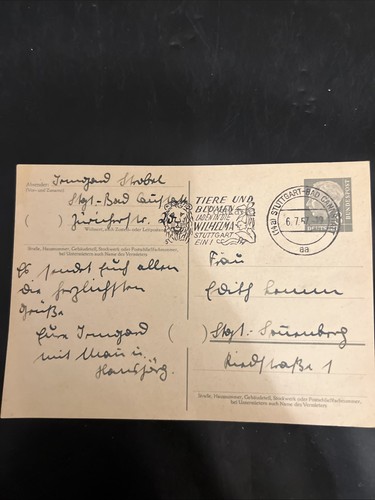 Absender:
Irmgard Strobel
Stgt-Bad Cannstatt
( ) Züricherstr.
Wohnort, auch Zustell- oder Leitpostamt
Straße, Hausnummer, Gebäudeteil, Stockwerk oder Postschließfachnummer,
bei Untermietern auch Name des Vermieters
Es sendet Euch allen
die herzlichsten
Grüße
Eure Irmgard
mit Mann u.
Hansjörg.
TIERE UND
BLUMEN
LADEN IN DIE
WILHELMA
STUTTGART
EIN!
(14a) STUTTGART-BAD CANNSTATT
6.7.57
aa
Frau
Edith
( ) Stgt.-Sonnenberg
Riedstraße 1
Straße, Hausnummer, Gebäudeteil, Stockwerk oder Postschließfachnummer,
bei Untermietern auch Name des Vermieters